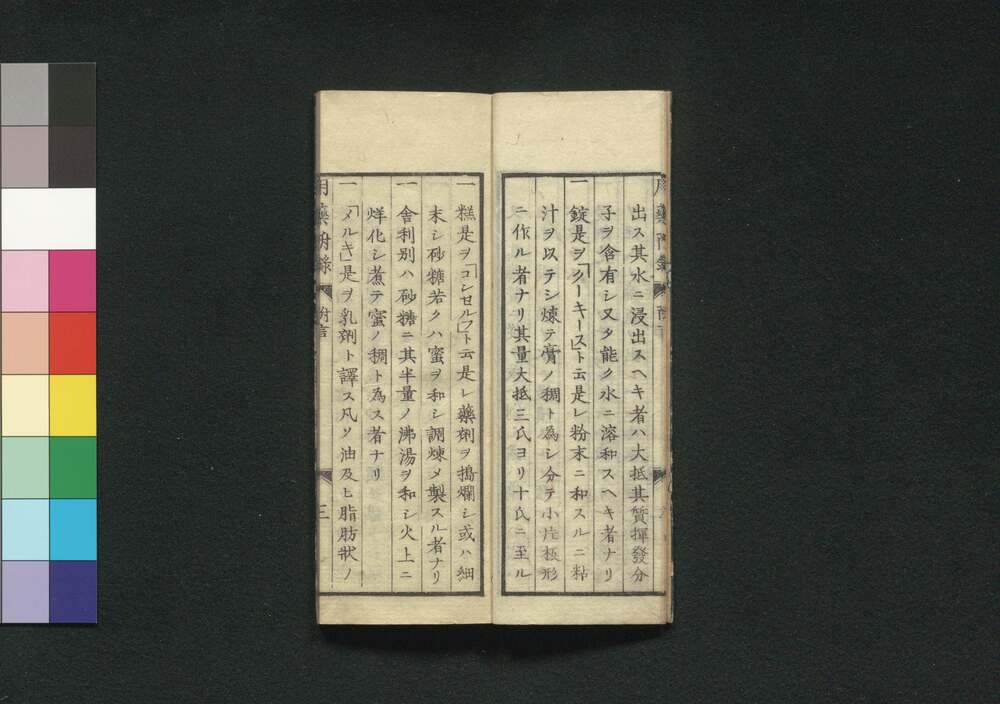 出ス其水ニ浸出スヘキ者ハ大抵其質揮發分
子ヲ含有シ又タ能ク水ニ溶和スヘキ者ナリ
一錠是ヲ「クーキース」ト云是レ粉末ニ和スルニ粘
汁ヲ以テシ煉テ膏ノ稠ト為シ分テ小片板形
ニ作ル者ナリ其量大抵三氏ヨリ十氏ニ至ル
一糕是ヲ「コンセルフ」ト云是レ藥劑ヲ搗爛シ或ハ細
末シ砂糖若クハ蜜ヲ和シ調煉メ製スル者ナリ
一舎利別ハ砂糖ニ其半量ノ沸湯ヲ和シ火上ニ
烊化シ煮テ蜜ノ稠ト為ス者ナリ
一「メルキ」是ヲ乳劑ト譯ス凡ソ油及ヒ脂肪狀ノ
附言
三